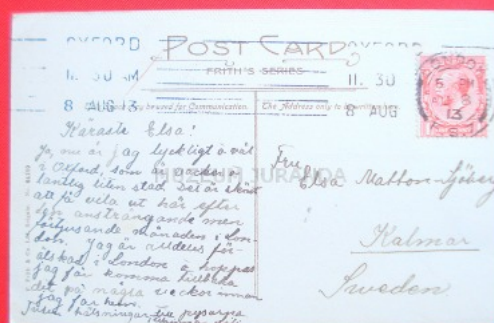 OXFORD
POST CARD
FRITH'S SERIES
11. 30 AM
8 AUG 3
11. 30
8 AUG
LONDON
13
be used for Communication.
The Address only to be written
Käraste Elsa!
Ja, nu är jag lyckligt o väl
i Oxford, som är vacker o
liten stad. Det är skönt
att få vila ut här efter
den ansträngande men
förtjusande månaden i Lon-
don. Jag är alldeles för-
älskad i London o hoppas
jag får komma tillbaka
dit på några veckor innan
jag far hem.
hälsningar
Fru
Elsa Mattson-Sjöberg
Kalmar
Sweden
JURANDA